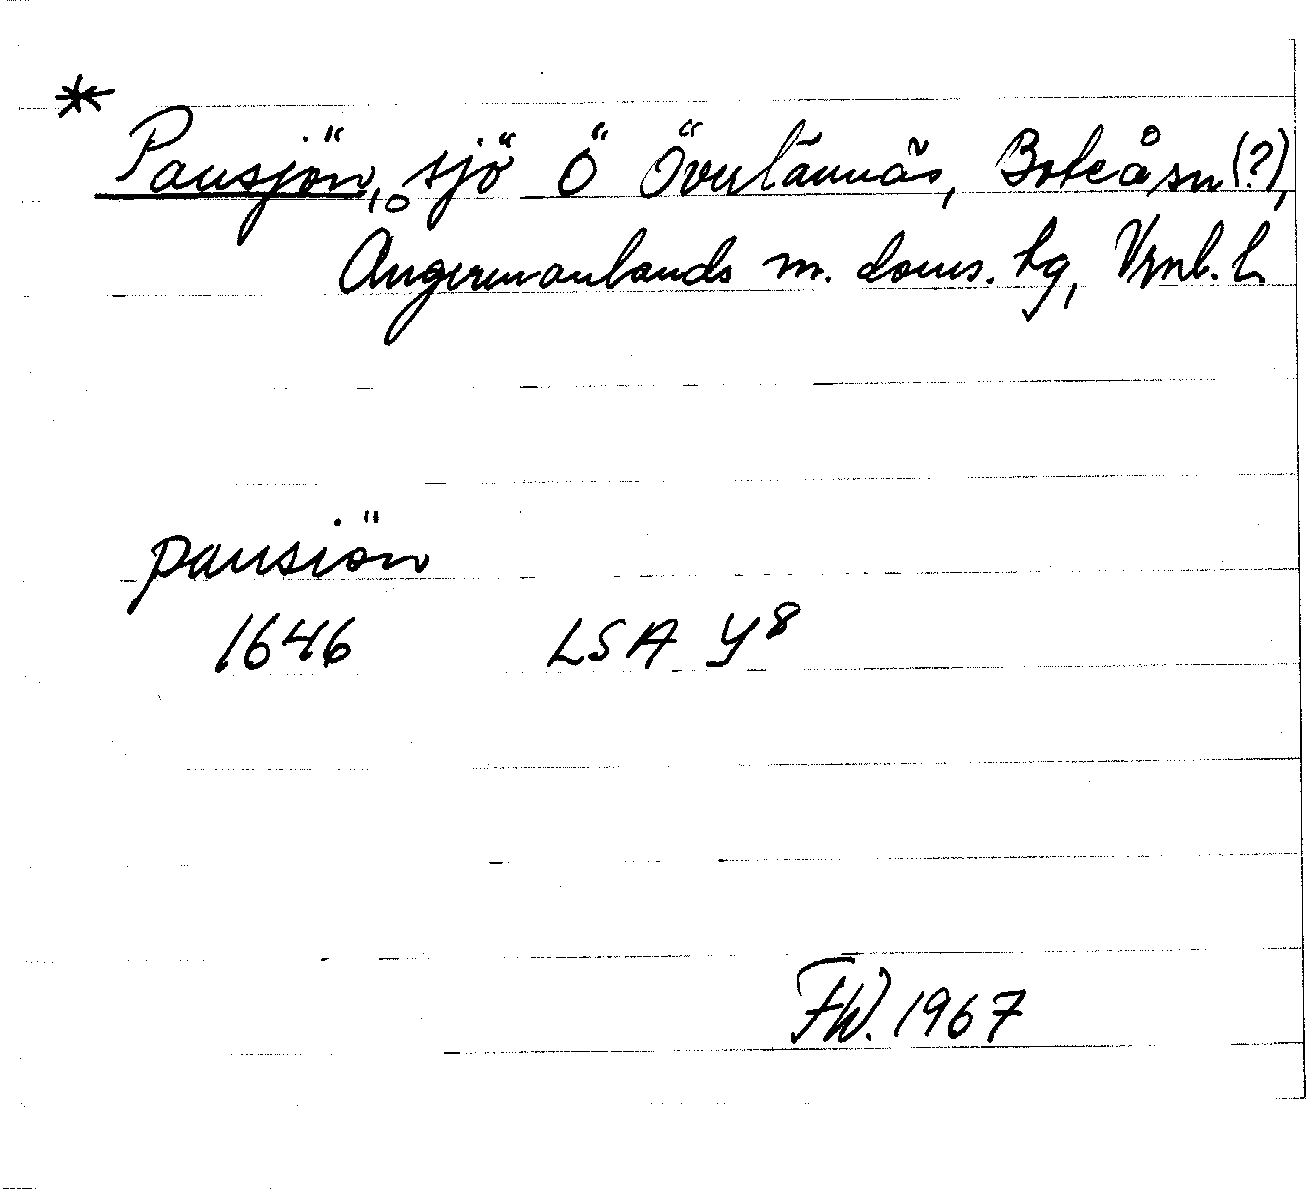 * Pansjön, sjö Ö Överlännäs, Boteå sn (?),
Ångermanlands m. doms. hg, Vrnl. l.
pansiön
1646 LSA Y8
FW. 1967